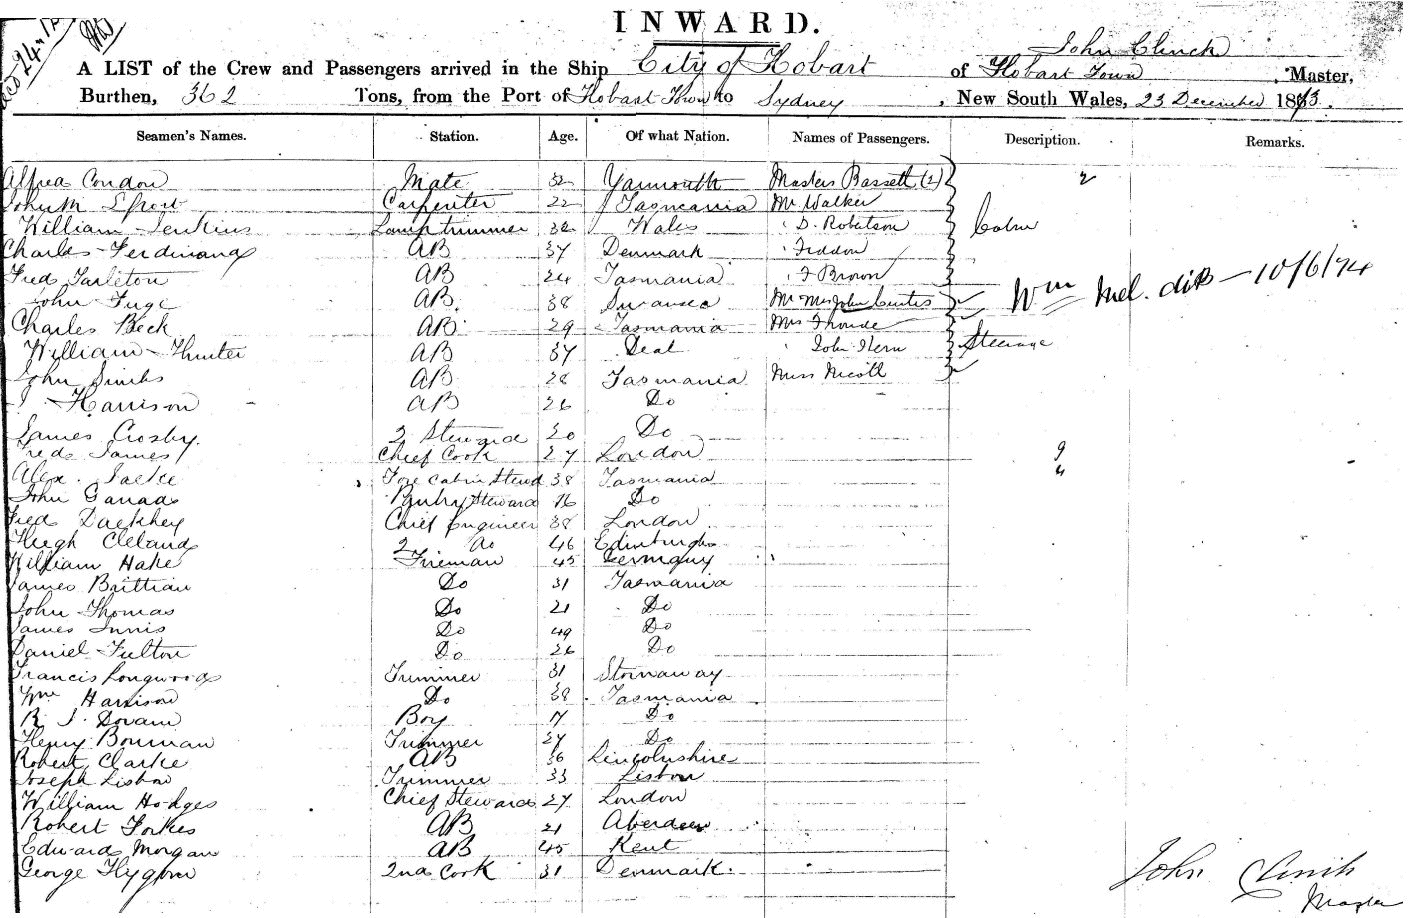 INWARD.
John Clinch
A LIST of the Crew and Passengers arrived in the Ship City of Hobart of Hobart Town , Master,
Burthen, 362 Tons, from the Port of Hobart Town to Sydney , New South Wales, 23 December 1873.
Seamen's Names. Station. Age. Of what Nation. Names of Passengers. Description. Remarks.
Alfred Condon Mate 32 Yarmouth Masters Bassett (2) 2
John M Carpenter 22 Tasmania Mr Walker
William Jenkins Lamp trimmer 32 Wales " D. Robertson Cabin
Charles Ferdinand AB 37 Denmark " Fiddon
Fred Tarleton AB 24 Tasmania " F Brown
John Fuge AB 38 Swansea Mr Mrs John Curtis Wm Mel. 10/6/74
Charles Beck AB 29 Tasmania Mrs
William Hunter AB 37 Deal " John Hern Steerage
John AB 28 Tasmania Miss Nicoll
Harrison AB 26 Do
James Crosby. 2 Steward 30 Do
Fred James Chief Cook 27 London 9
Alex. Fore Cabin Stewd 38 Tasmania 4
John Pantry Steward 16 Do
Fred Chief Engineer 38 London
Hugh Cleland 2 do 46 Edinburgh
William Hake Fireman 45 Germany
James Brittian Do 31 Tasmania
John Thomas Do 21 Do
James Innis Do 49 Do
Daniel Fulton Do 26 Do
Francis Longwood Trimmer 31 Stornaway
Wm Harrison Do 38 Tasmania
R. J. Boy 17 Do
Henry Bowman Trimmer 27 Do
Robert Clarke AB 36 Lincolnshire
Joseph Lisbon Trimmer 33 Lisbon
William Hodges Chief Steward 27 London
Robert Forbes AB 21 Aberdeen
Edward Morgan AB 45 Kent
George 2nd Cook 31 Denmark.
John Clinch
Master